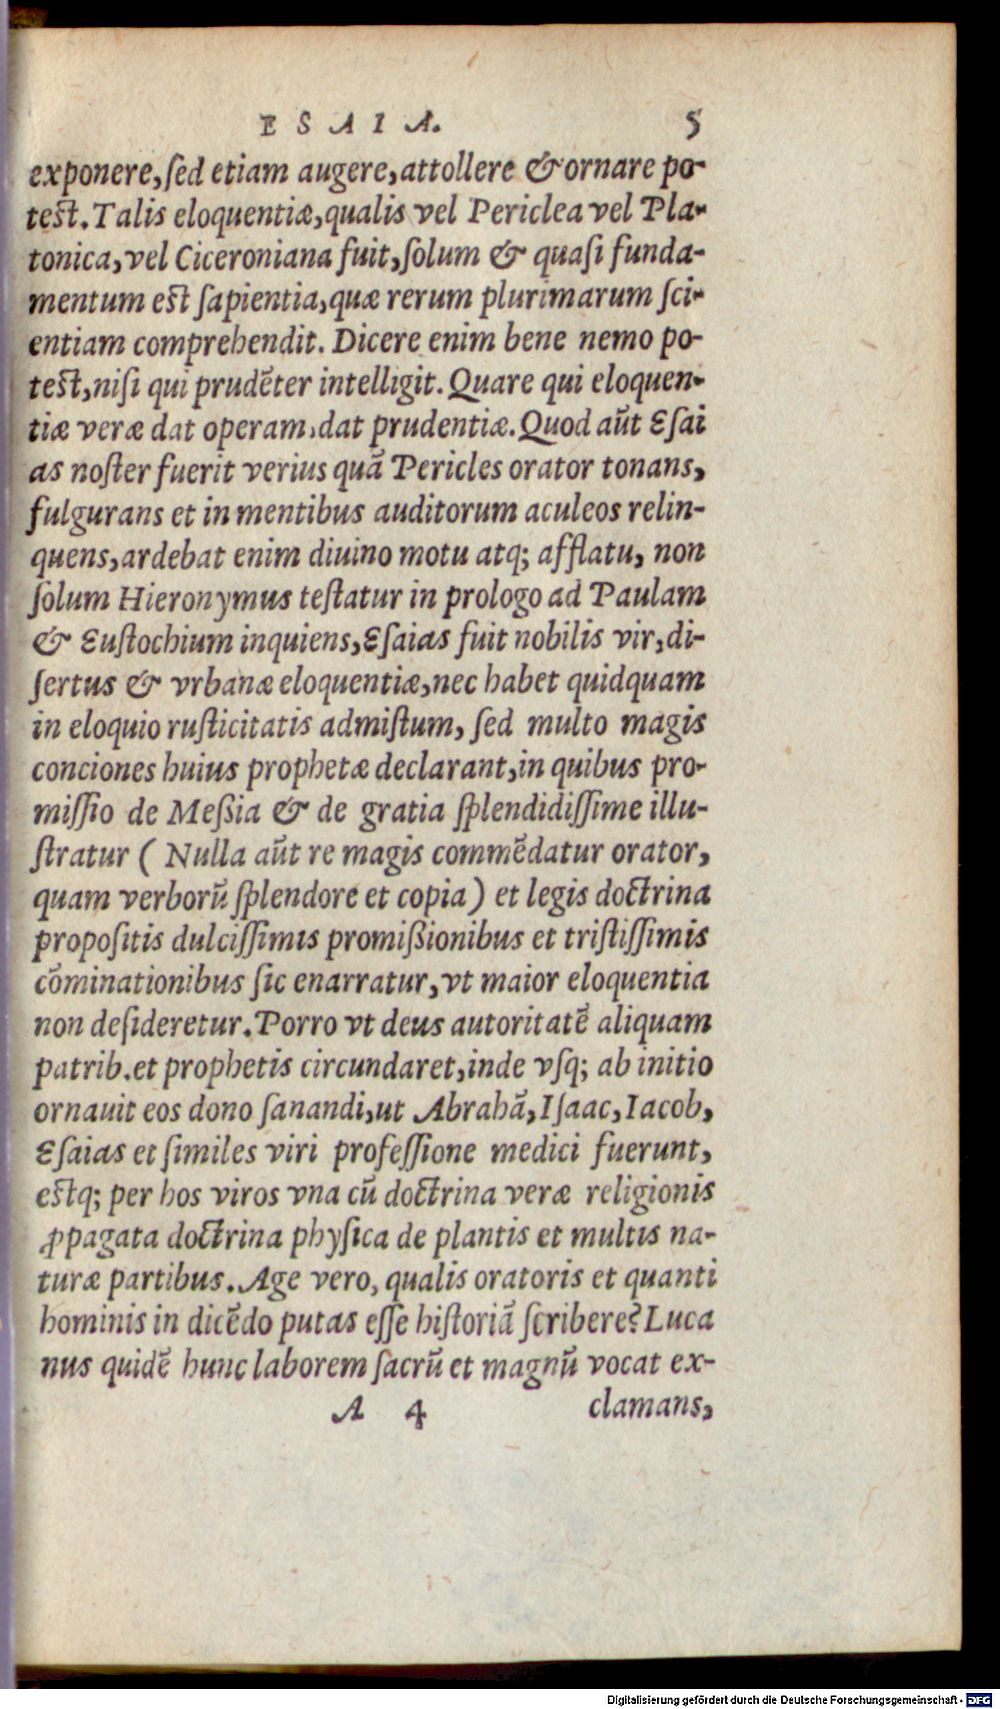 ESAIA. 5
exponere, ſed etiam augere, attollere & ornare po-
teſt. Talis eloquentiæ, qualis vel Periclea vel Pla-
tonica, vel Ciceroniana fuit, ſolum & quaſi funda-
mentum eſt ſapientia, quæ rerum plurimarum ſci-
entiam comprehendit. Dicere enim bene nemo po-
teſt, niſi qui prudẽter intelligit. Quare qui eloquen-
tiæ veræ dat operam, dat prudentiæ. Quod aũt Eſai
as noſter fuerit verius quã Pericles orator tonans,
fulgurans et in mentibus auditorum aculeos relin-
quens, ardebat enim diuino motu atq; afflatu, non
ſolum Hieronymus teſtatur in prologo ad Paulam
& Euſtochium inquiens, Eſaias fuit nobilis vir, di-
ſertus & vrbanæ eloquentiæ, nec habet quidquam
in eloquio ruſticitatis admiſtum, ſed multo magis
conciones huius prophetæ declarant, in quibus pro-
miſſio de Meßia & de gratia ſplendidiſſime illu-
ſtratur ( Nulla aũt re magis commẽdatur orator,
quam verborũ ſplendore et copia) et legis doctrina
propoſitis dulciſſimis promißionibus et triſtiſſimis
cõminationibus ſic enarratur, vt maior eloquentia
non deſideretur. Porro vt deus autoritatẽ aliquam
patrib. et prophetis circundaret, inde vſq; ab initio
ornauit eos dono ſanandi, ut Abrahã, Iſaac, Iacob,
Eſaias et ſimiles viri profeſſione medici fuerunt,
eſtq; per hos viros vna cũ doctrina veræ religionis
ꝓpagata doctrina phyſica de plantis et multis na-
turæ partibus. Age vero, qualis oratoris et quanti
hominis in dicẽdo putas eſſe hiſtoriã ſcribere? Luca
nus quidẽ hunc laborem ſacrũ et magnũ vocat ex-
A 4 clamans,
Digitalisierung gefördert durch die Deutsche Forschungsgemeinschaft - DFG